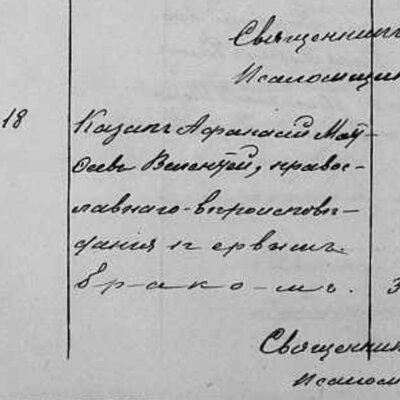 Священникъ
Псаломщик
18
Казакъ Афанасій Моѵ-
сеевъ православ-
лавнаго вѣроисповѣ-
данія первымъ
бракомъ.
3
Священник
Псалом